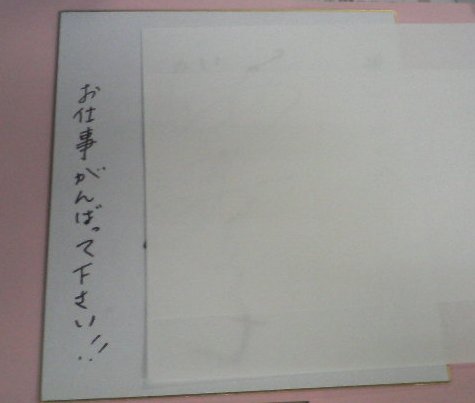 お仕事がんばって下さい!!